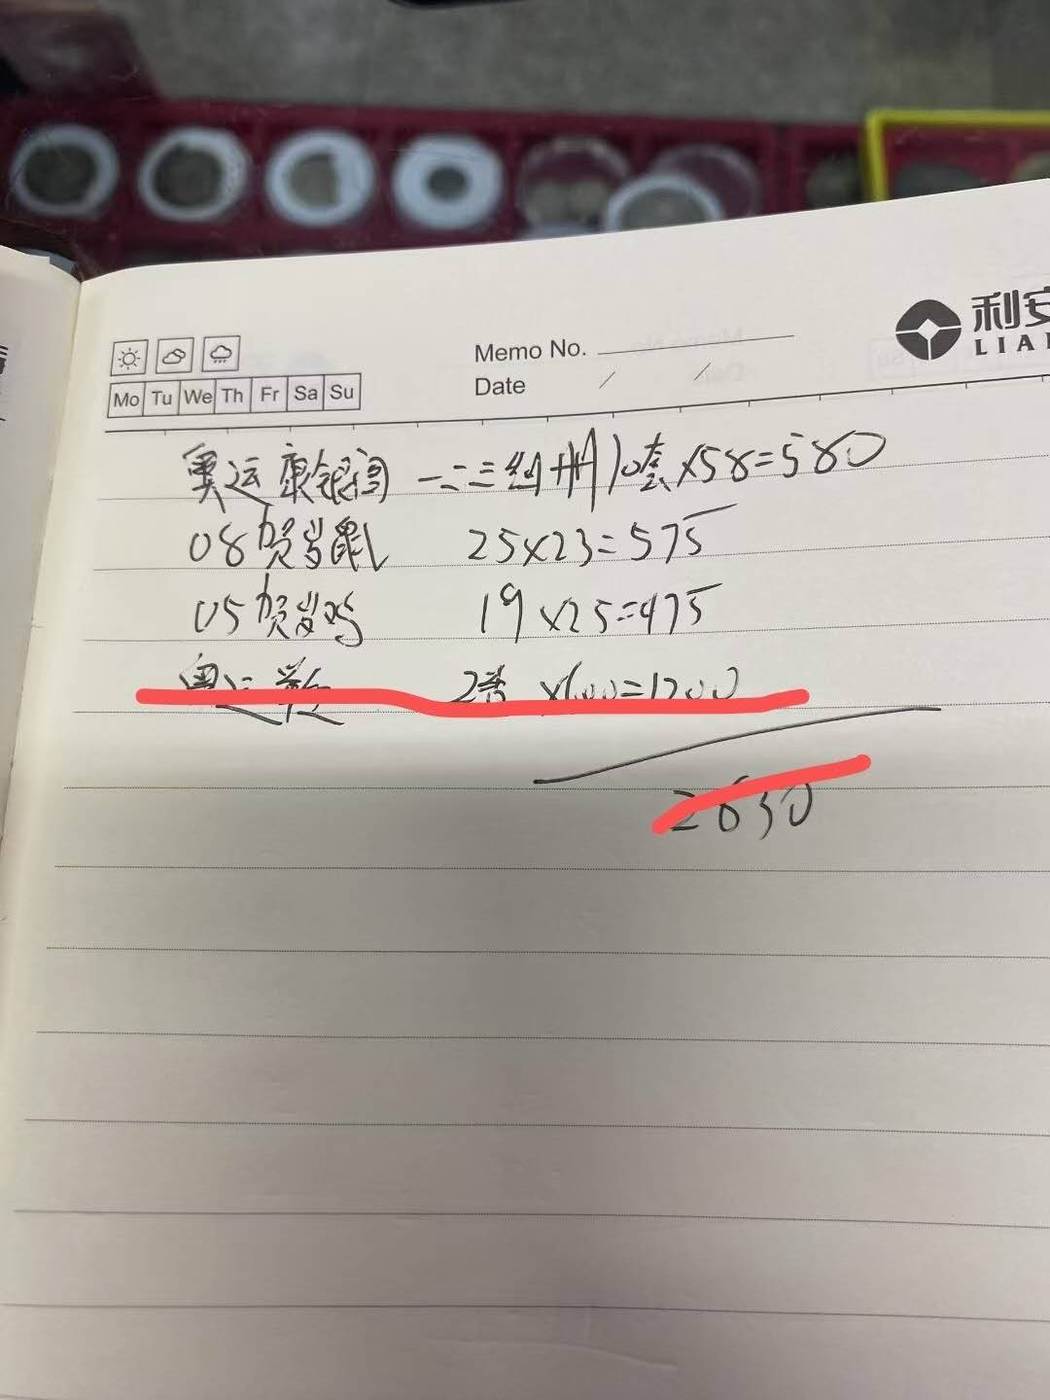 利安
LIAN
Memo No.
Mo Tu We Th Fr Sa Su
Date / /
奥运康银阁一二三组册10套×58=580
08贺岁鼠 25×23=575
05贺岁鸡 19×25=475
奥运 2套 ×600=1200
2630